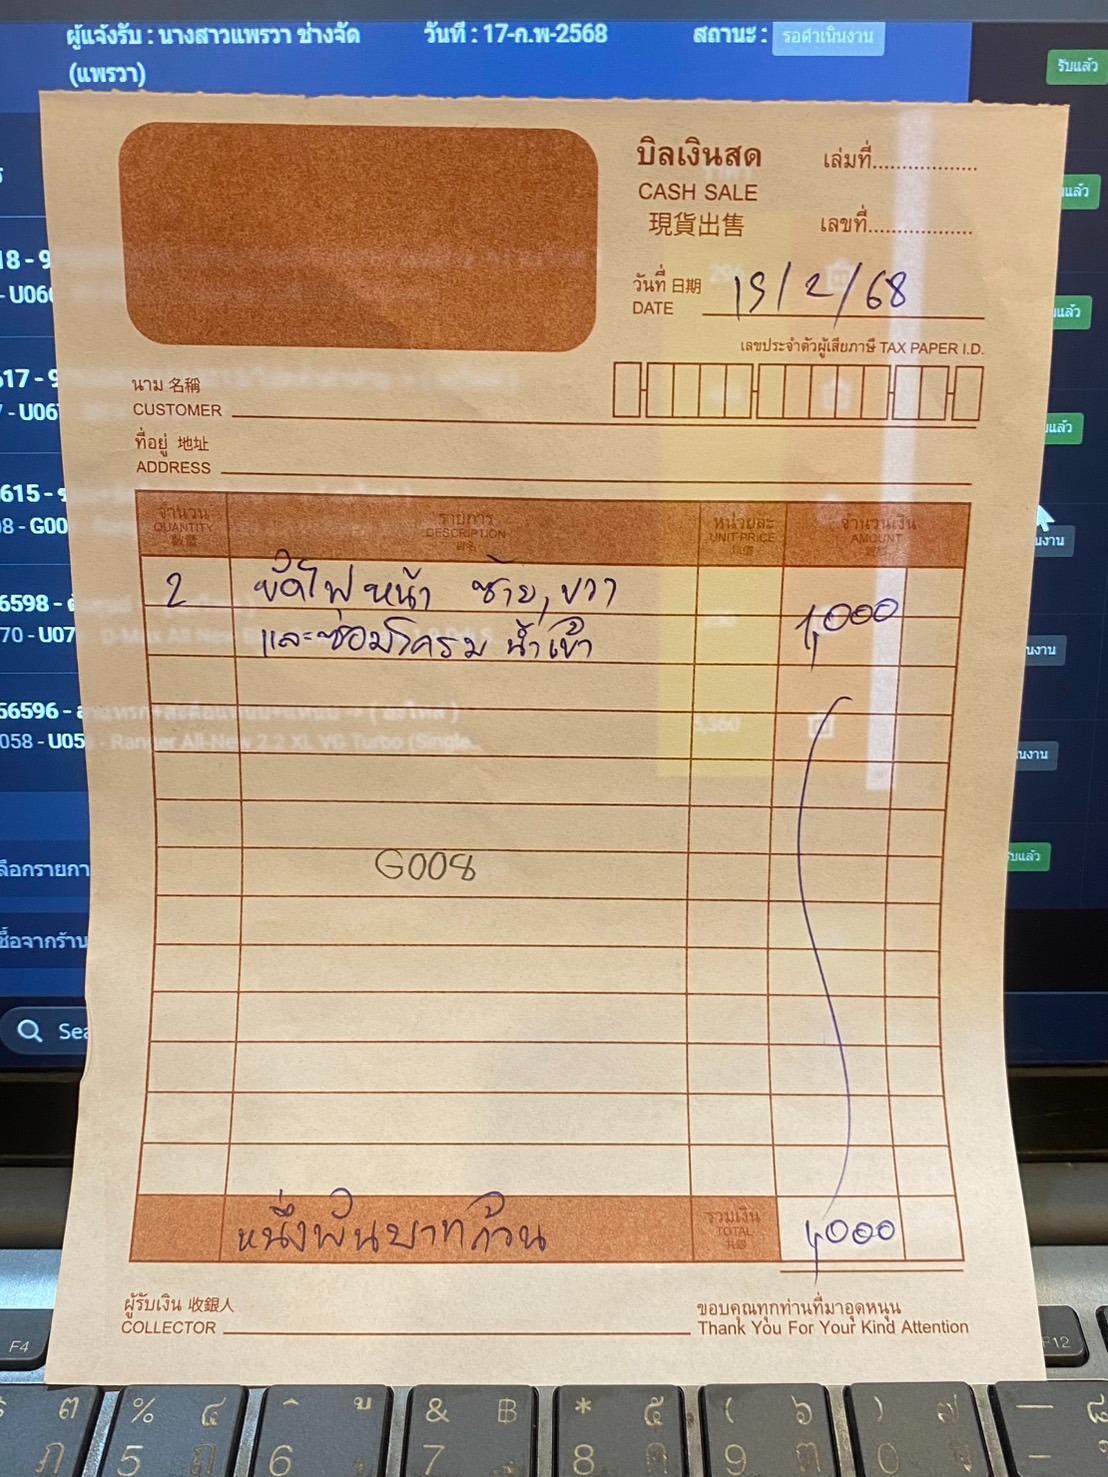 ผู้แจ้งรับ : นางสาวแพรวา ช่างจัด วันที่ : 17-ก.พ-2568 สถานะ : รอดำเนินงาน
(แพรวา)
รับแล้ว
บิลเงินสด เล่มที่
CASH SALE
現貨出售 เลขที่
วันที่ 日期 19/2/68
DATE
เลขประจำตัวผู้เสียภาษี TAX PAPER I.D.
นาม 名稱
CUSTOMER
ที่อยู่ 地址
ADDRESS
จำนวน รายการ หน่วยละ จำนวนเงิน
QUANTITY DESCRIPTION UNIT PRICE AMOUNT
數量
2 ขัดไฟหน้า ซ้าย, ขวา 1,000
และซ่อมโครม น้ำเข้า
56596
058 - U05 - Ranger All-New 2.2 XL VG Turbo (Single
G008
ลือกรายกา
ซื้อจากร้าน
Sea
หนึ่งพันบาทถ้วน รวมเงิน 1,000
TOTAL
ผู้รับเงิน 收銀人 ขอบคุณทุกท่านที่มาอุดหนุน
COLLECTOR Thank You For Your Kind Attention
F4 F12
% ๔ & ฿ * ๕ ( ๖ ) ๗
5 ถ 6 7 8 ค 9 ต 0 จ